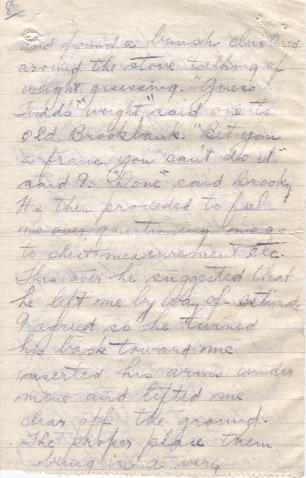 8
and found a bunch clustered
around the stove talking of
weight guessing. "Guess
weight" said one to
old Brookbank. "Bet you
a franc you can't do it"
said I. "Done" said Brook,
He then proceeded to feel
me over questioning me as
to chest measurement etc.
This over he suggested that
he lift me by way of
I agreed so he turned
his back toward me
inserted his arms under
mine and lifted me
clear off the ground.
The proper place then
being in a very